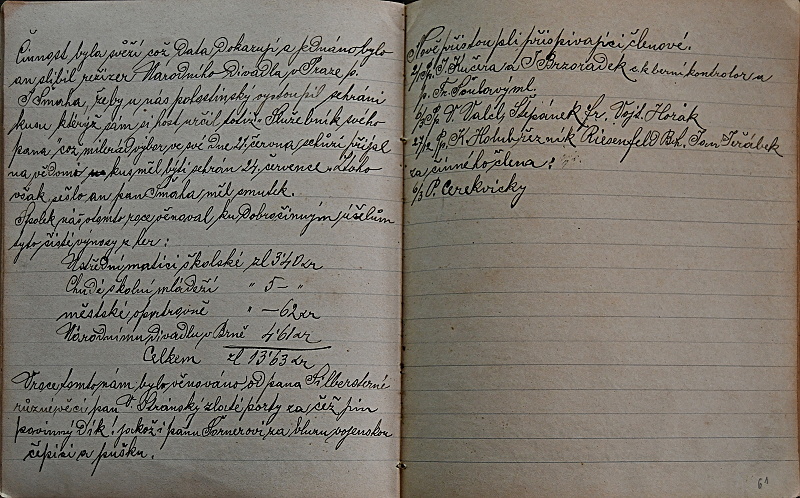 Činnost byla svěží což data dokazují a jednáno bylo
an slíbil režizer Národního Divadla v Praze p.
J. Šmaha, že by u nás pohostinsky vystoupil sehráni
kusu kterýž sám si host určil totiž: Služebník svého
pana, což milerád výbor ve své dne 21. června schůzi přijal
na vědomo kus měl býti sehrán 24. července z toho
však sešlo an pan Šmaha měl smutek.
Spolek náš v tomto roce věnoval ku dobročinným účelům
tyto čisté výnosy z her:
Ústřední matici školské zl 3'40 kr
Chudé školní mládeži " 5— "
městské opatrovně " —62 kr
Národnímu Divadlu v Brně 4'61 kr
Celkem zl 13'63 kr
V roce tomto nám bylo věnováno od pana Silbersterna
různé věci pan V. Stránský zlaté porty za čež jim
povinný dík! jakož i pánu Fornerovi za blunu vojenskou
čepici a pušku.
Nově přistoupli přispívající členové.
2/1 Pp. J. Kučera a J. Brzorádek c.k. berní kontrolor a
p. Fr. Soutavý ml.
6/2 Pp V. Valeš, Štěpánek Fr. Vojt. Horák
27/12 Pp. K. Holub řezník, Riesenfeld Bh. Tom Jeřábek
za činného člena:
6/3 P. Cerekvicky
61